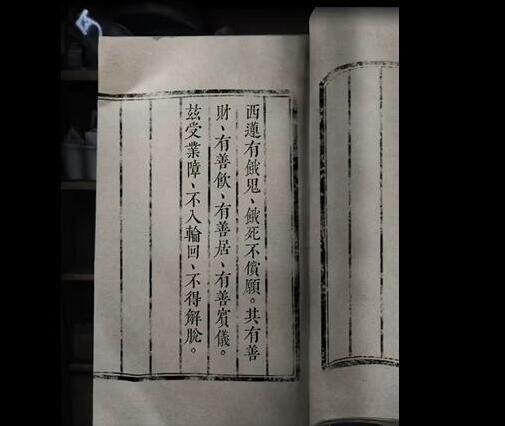 西蓮有餓鬼、餓死不償願。其有善
財、有善飲、有善居、有善賓儀。
茲受業障、不入輪回、不得解脫。